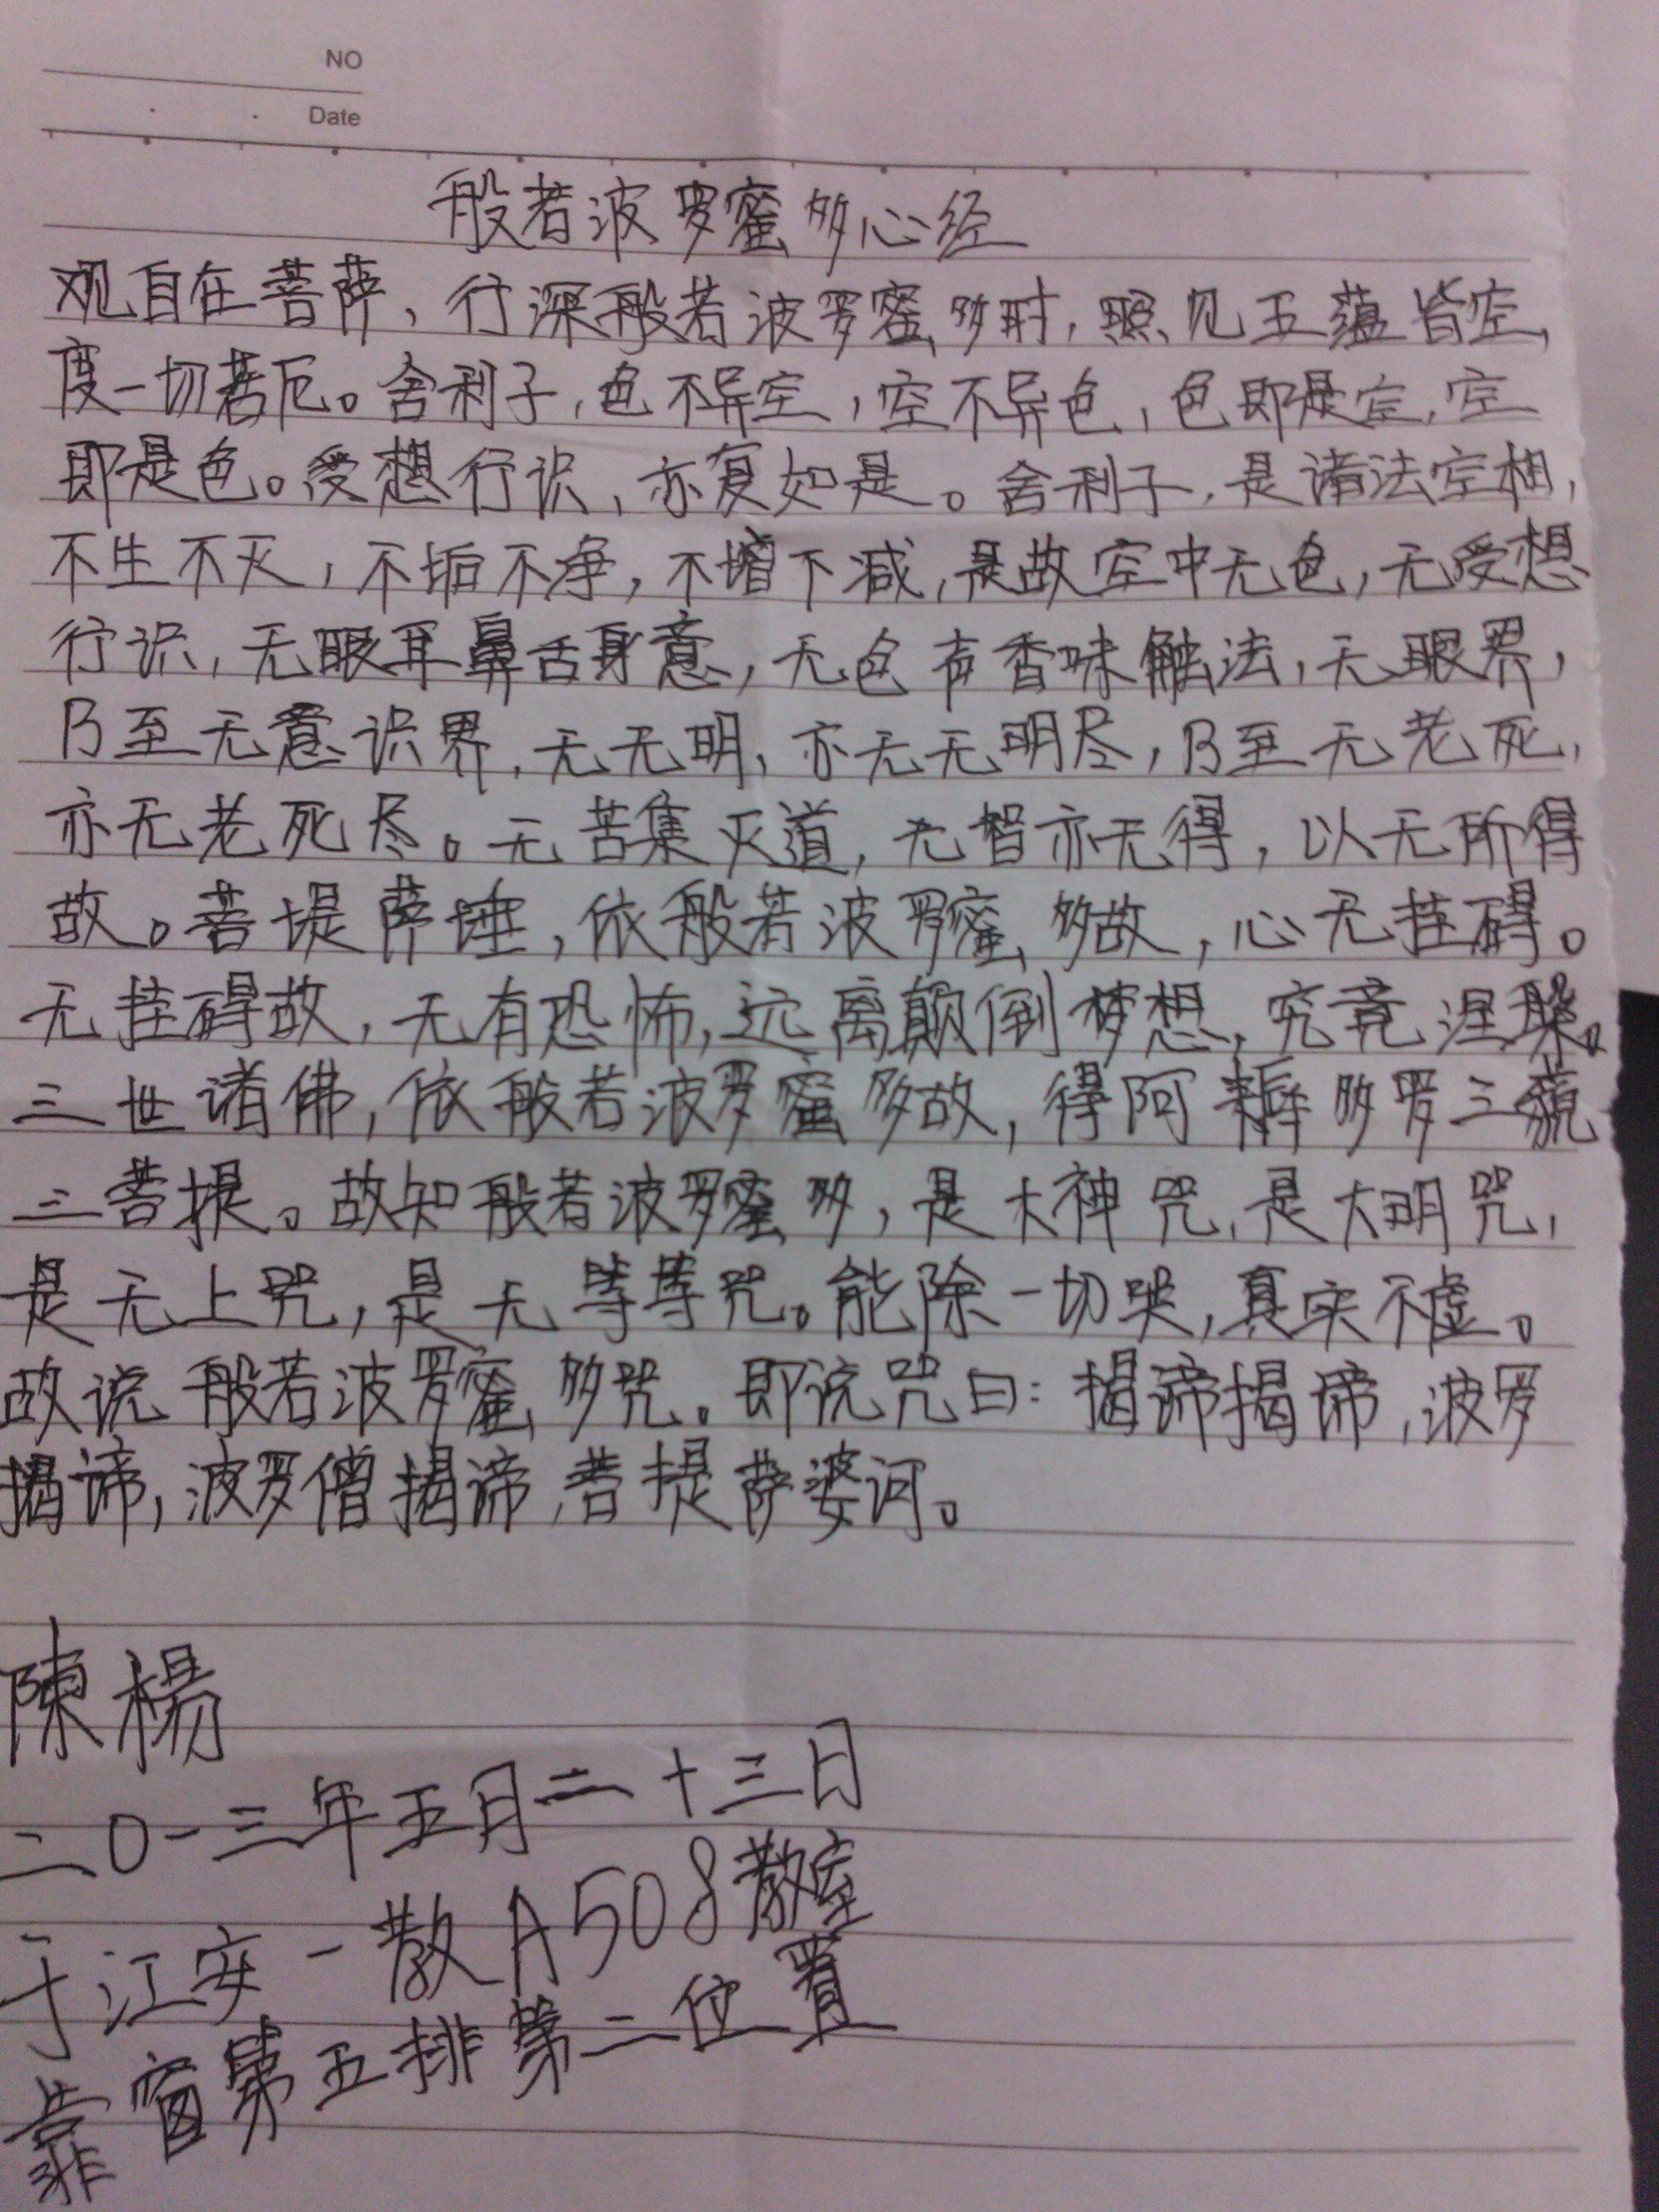 NO
Date
般若波罗蜜多心经
观自在菩萨，行深般若波罗蜜多时，照见五蕴皆空，
度一切苦厄。舍利子，色不异空，空不异色，色即是空，空
即是色。受想行识，亦复如是。舍利子，是诸法空相，
不生不灭，不垢不净，不增下减，是故空中无色，无受想
行识，无眼耳鼻舌身意，无色声香味触法，无眼界，
乃至无意识界，无无明，亦无无明尽，乃至无老死，
亦无老死尽。无苦集灭道，无智亦无得，以无所得
故。菩提萨埵，依般若波罗蜜多故，心无挂碍。
无挂碍故，无有恐怖，远离颠倒梦想，究竟涅槃。
三世诸佛，依般若波罗蜜多故，得阿耨多罗三藐
三菩提。故知般若波罗蜜多，是大神咒，是大明咒，
是无上咒，是无等等咒。能除一切哭，真实不虚。
故说般若波罗蜜多咒。即说咒曰：揭谛揭谛，波罗
揭谛，波罗僧揭谛，菩提萨婆诃。
陳楊
二〇一三年五月二十三日
于江安一教A508教室
靠窗第五排第二位置